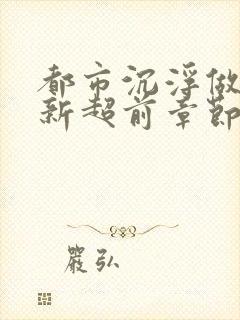 都市沉浮做
新超前章節
嚴弘